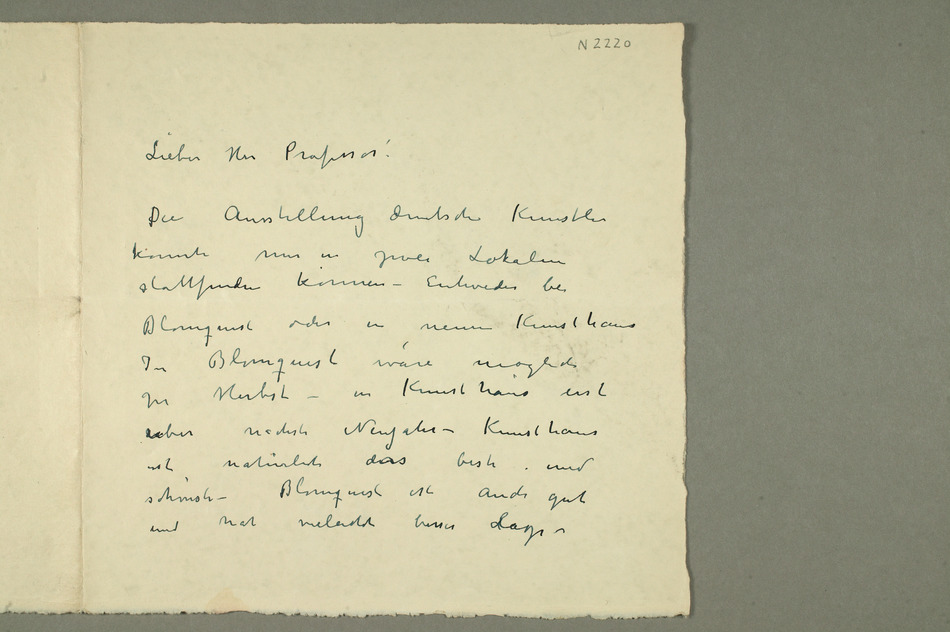 N 2220
Lieber Herr Professor!
Die Ausstellung deutscher Künstler
könnte nur in zwei Lokalen
stattfinden können – Entweder bei
Blomquist oder in neuen Kunsthaus
In Blomquist wäre möglich
zu Herbst – in Kunsthaus erst
uber nachste Neujahr – Kunsthaus
ist naturlich das beste und
schönste – Blomquist ist auch gut
und hat vieleicht besser Lage –